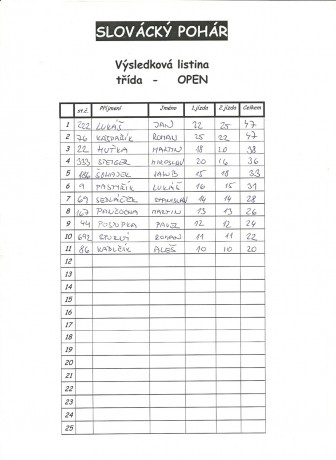 SLOVÁCKÝ POHÁR
Výsledková listina
třída - OPEN
st.č. Příjmení Jméno 1.jízda 2.jízda Celkem
1 222 LUKÁŠ JAN 22 25 47
2 76 KAŠPAŘÍK ROMAN 25 22 47
3 22 HUŤKA MARTIN 18 20 38
4 333 STEIGER MIROSLAV 20 16 36
5 186 JAKUB 15 18 33
6 9 LUKÁŠ 16 15 31
7 69 SEDLÁČEK STANISLAV 14 14 28
8 167 MARTIN 13 13 26
9 44 PAVEL 12 12 24
10 692 ROMAN 11 11 22
11 86 KADLČÍK ALEŠ 10 10 20
12
13
14
15
16
17
18
19
20
21
22
23
24
25